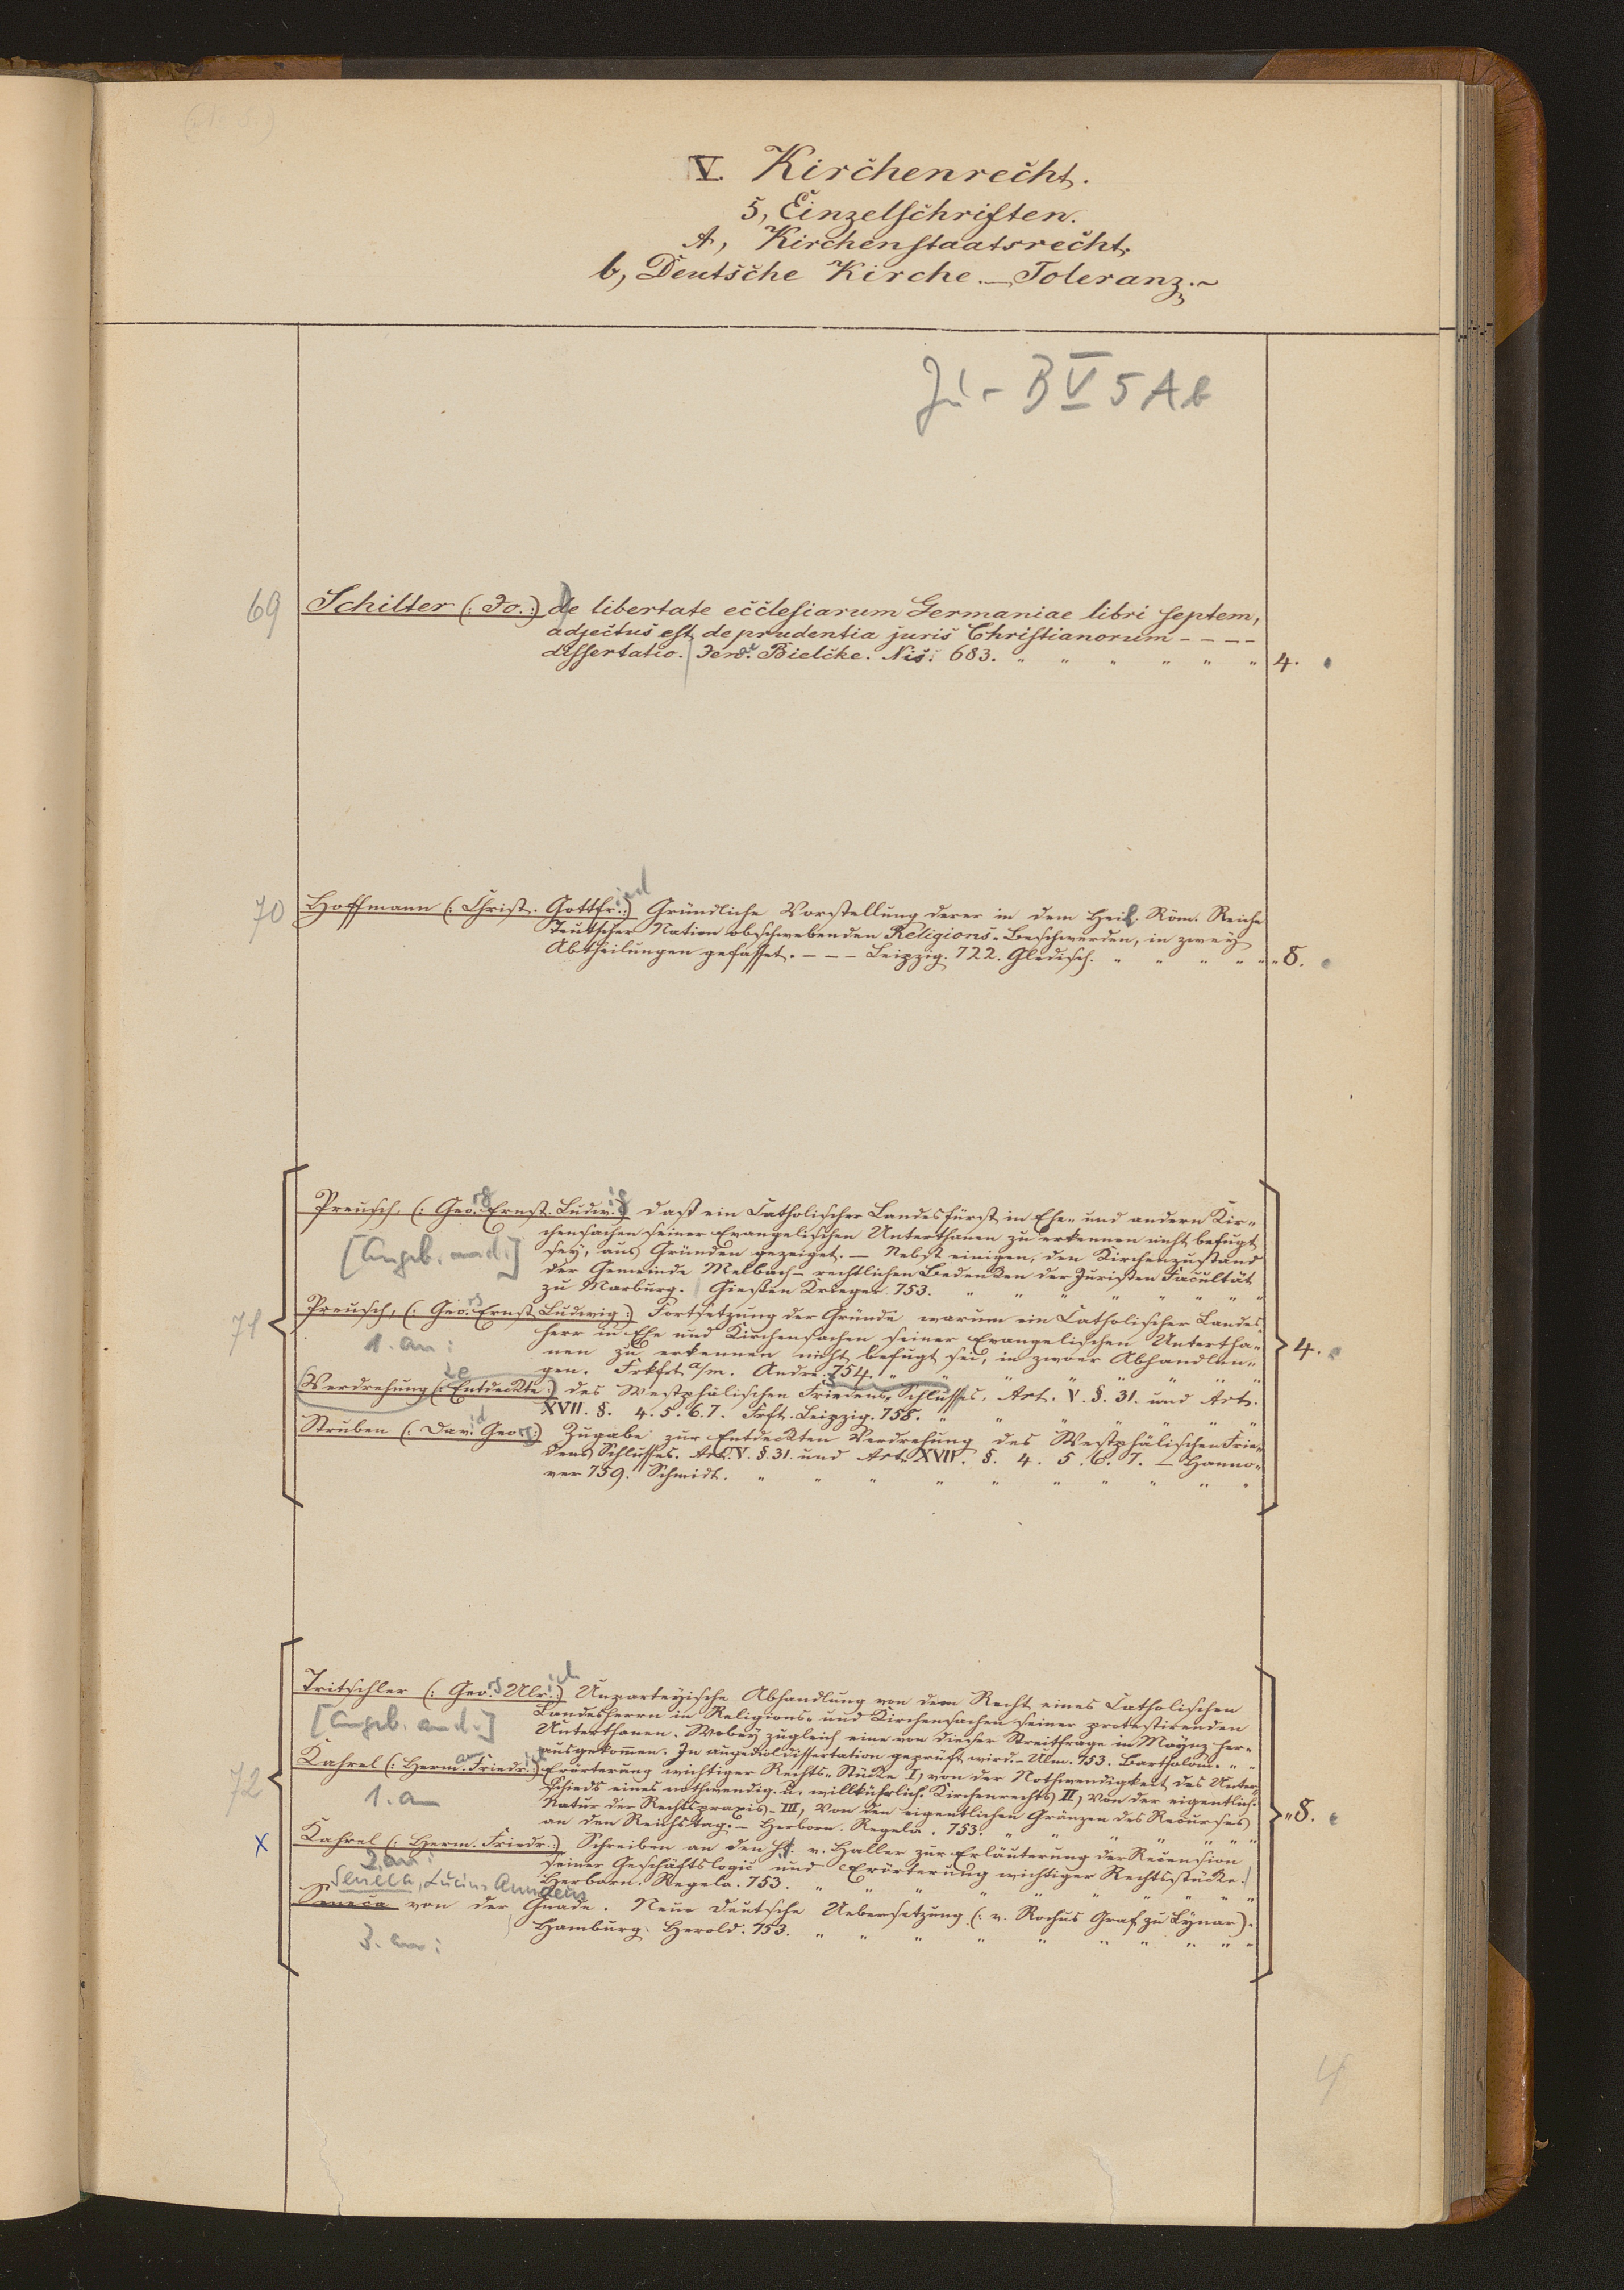 V. Kirchenrecht.
5, Einzelschriften.
A, Kirchenstaatsrecht.
b, Deutsche Kirche. — Toleranz. ~
Ju - B V 5 A b
69 Schilter (: Jo. :) De libertate ecclesiarum Germaniae libri septem,
adjectus est de prudentia juris Christianorum - - - -
dissertatio. Jen. Bielcke. Nis. 683. " " " " " " 4.
70 Hoffmann (: Christ. Gottfried :) Gründliche Vorstellung derer in dem Heil. Röm. Reiche
Teutscher Nation obschwebenden Religions-Beschwerden, in zwey
Abtheilungen gefasset. - - - Leipzig. 722. Gleditsch. " " " " " 8.
Preusch, (: Georg Ernst. Ludwig :) daß ein Catholischer Landesfürst in Ehe- und andern Kir-
chensachen seiner Evangelischen Unterthanen zu erkennen nicht befugt
[Angeb. an d.:] sey, aus Gründen gezeiget. — Nebst einigen, den Kirchenzustand
der Gemeinde Melbach - rechtlichen Bedenken der Juristen Facultät
zu Marburg. Gießen Krieger 753. " " " " " " "
71 Preusch, (: Georg Ernst Ludwig :) Fortsetzung der Gründe warum ein Catholischer Landes-
herr in Ehe und Kirchensachen seiner Evangelischen Untertha- 4.
1. an: nen zu erkennen nicht befugt sei, in zwoer Abhandlun-
gen. Frkfrt a/m. Andre. 754. " " " " " " "
Verdrehung (: Entdeckte :) des Westphälischen Friedens-Schlusses. Art. V. §. 31. und Art.
XVII. §. 4. 5. 6. 7. Frft. Leipzig. 758. " " " " " "
Struben (: David Georg :) Zugabe zur Entdeckten Verdrehung des Westphälischen Frie-
dens Schlusses. Art. V. § 31. und Art. XVII. §. 4. 5. 6. 7. — Hanno-
ver 759. Schmidt. " " " " " " " " " "
Tritschler (: Georg Ulrich :) Unparteyische Abhandlung von dem Recht eines Catholischen
Landesherrn in Religions- und Kirchensachen seiner protestirenden
[Angeb. an d.:] Unterthanen. Wobey zugleich eine von dieser Streitfrage in Maynz her-
ausgekommen. Dissertation geprüft wird. - Ulm. 753. Bartholom. " "
72 Kahrel (: Hermann Friedr. :) Erörterung wichtiger Rechts-Stücke I, von der Nothwendigkeit des Unter-
schieds eines nothwendig. u. willkührlich. Kirchenrechts II, Von der eigentlich.
1. an Natur der Rechtspraxis - III, Von den eigentlichen Gränzen des Recurses 8.
an den Reichstag. - Herborn. Regela. 753. " " " " " "
x Kahrel (: Herm. Friedr. :) Schreiben an den H. v. Haller zur Erläuterung der Recension
2. an: seiner Geschäftslogic und Erörterung wichtiger Rechtsstücke.
Herborn. Regela. 753. " " " " " " " "
Seneca, Lucius Annaeus
Seneca von der Gnade. Neue deutsche Uebersetzung (: v. Rochus Graf zu Lynar).
3. an: Hamburg. Herold. 753. " " " " " " " " "
4